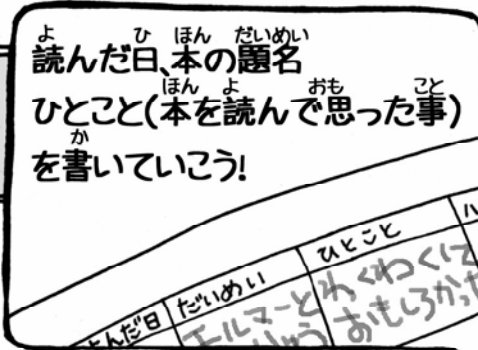 読んだ日、本の題名
ひとこと(本を読んで思った事)
を書いていこう!
よんだ日 だいめい ひとこと ハ
エルマーと わくわくして
りゅう おもしろかった